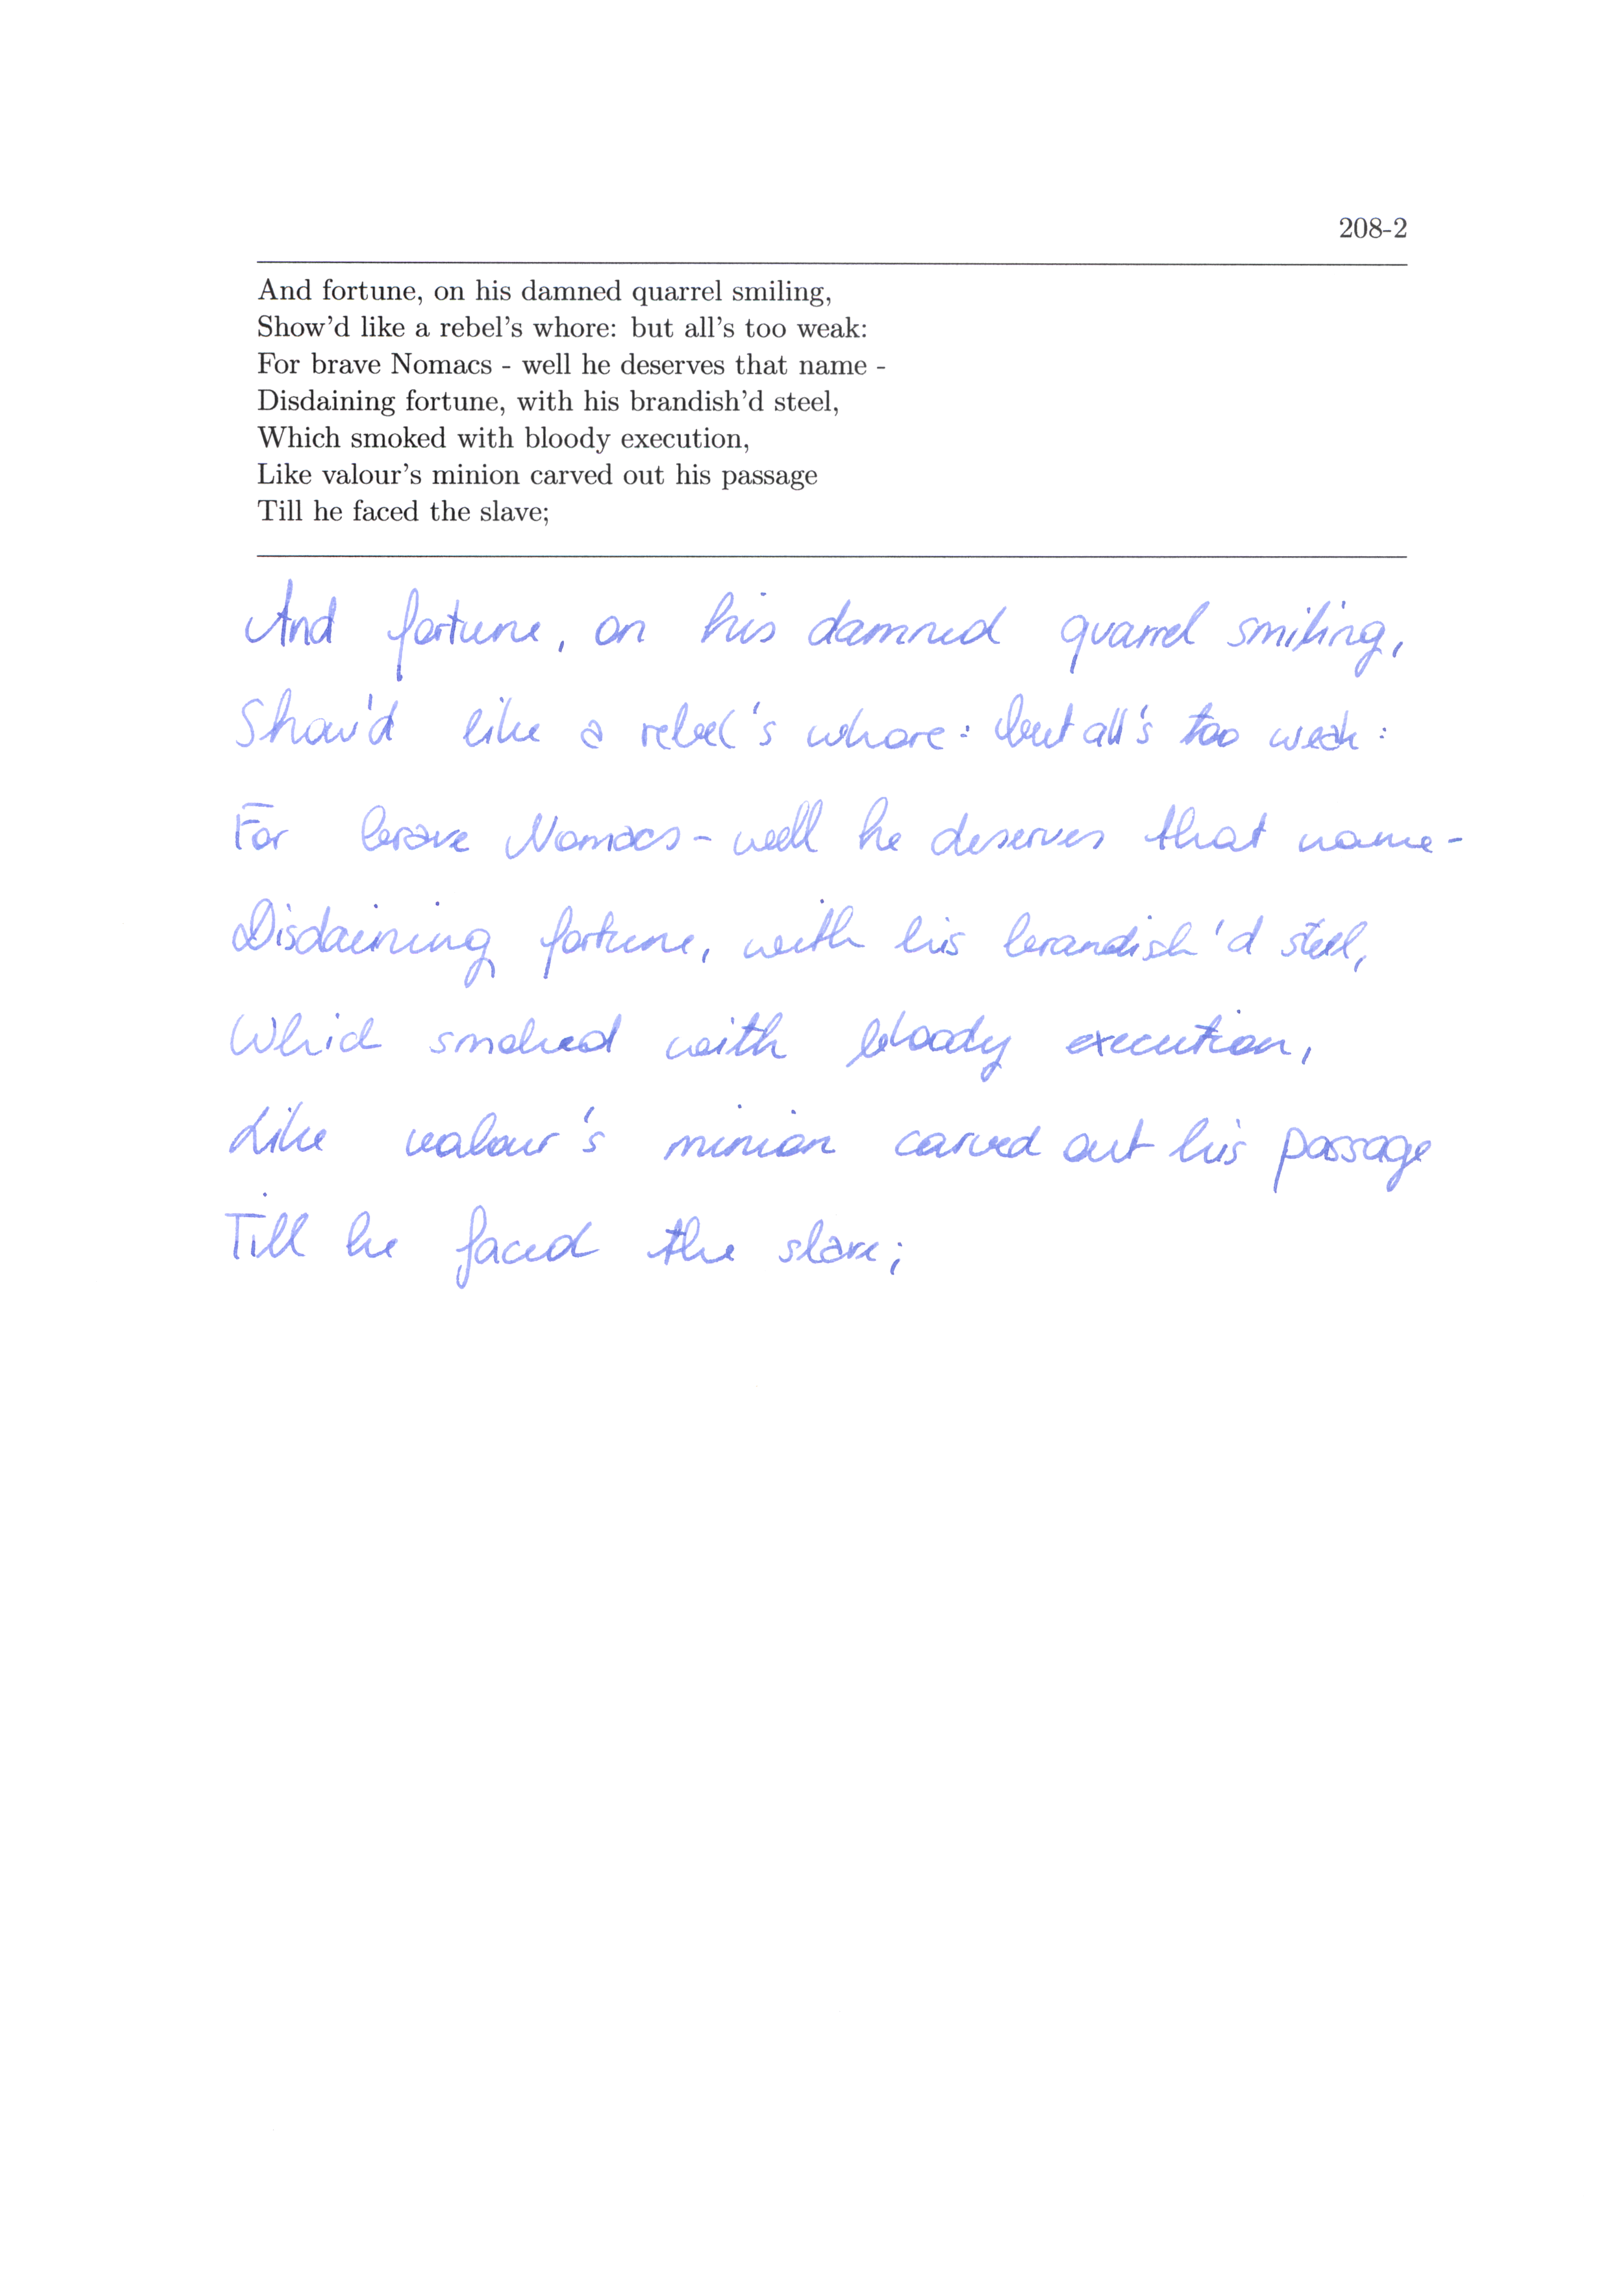 208-2
And fortune, on his damned quarrel smiling,
Show'd like a rebel's whore: but all's too weak:
For brave Nomacs - well he deserves that name -
Disdaining fortune, with his brandish'd steel,
Which smoked with bloody execution,
Like valour's minion carved out his passage
Till he faced the slave;
And fortune, on his damned quarrel smiling,
Show'd like a rebel's whore: but all's too weak:
For brave Nomacs - well he deserves that name -
Disdaining fortune, with his brandish'd steel,
Which smoked with bloody execution,
Like valour's minion carved out his passage
Till he faced the slave;